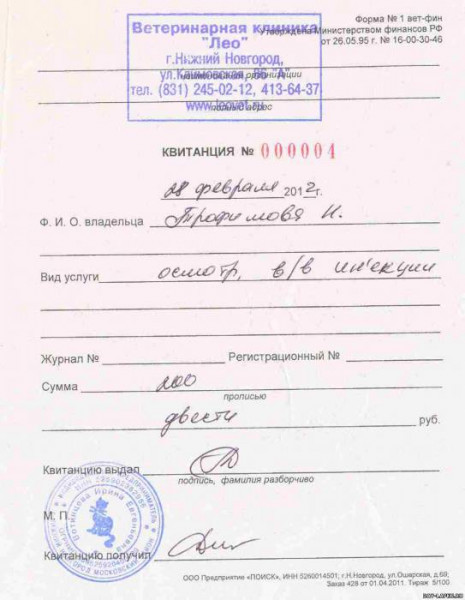 Ветеринарная клиника
"Лео"
г.Нижний Новгород,
ул.Климовская, 86 "А"
наименование организации
тел. (831) 245-02-12, 413-64-37
полный адрес
Форма № 1 вет-фин
Утверждена Министерством финансов РФ
от 26.05.95 г. № 16-00-30-46
КВИТАНЦИЯ № 000004
28 февраля 2012 г.
Ф. И. О. владельца Трофимова Н.
Вид услуги осмотр, в/в ин'екции
Журнал № Регистрационный №
Сумма 200
прописью
двести руб.
Квитанцию выдал
подпись, фамилия разборчиво
М. П.
Ирина Евгеньевна
Квитанцию получил
ООО Предприятие «ПОИСК», ИНН 5260014501, г.Н.Новгород, ул.Ошарская, д.69;
Заказ 428 от 01.04.2011. Тираж 5/100